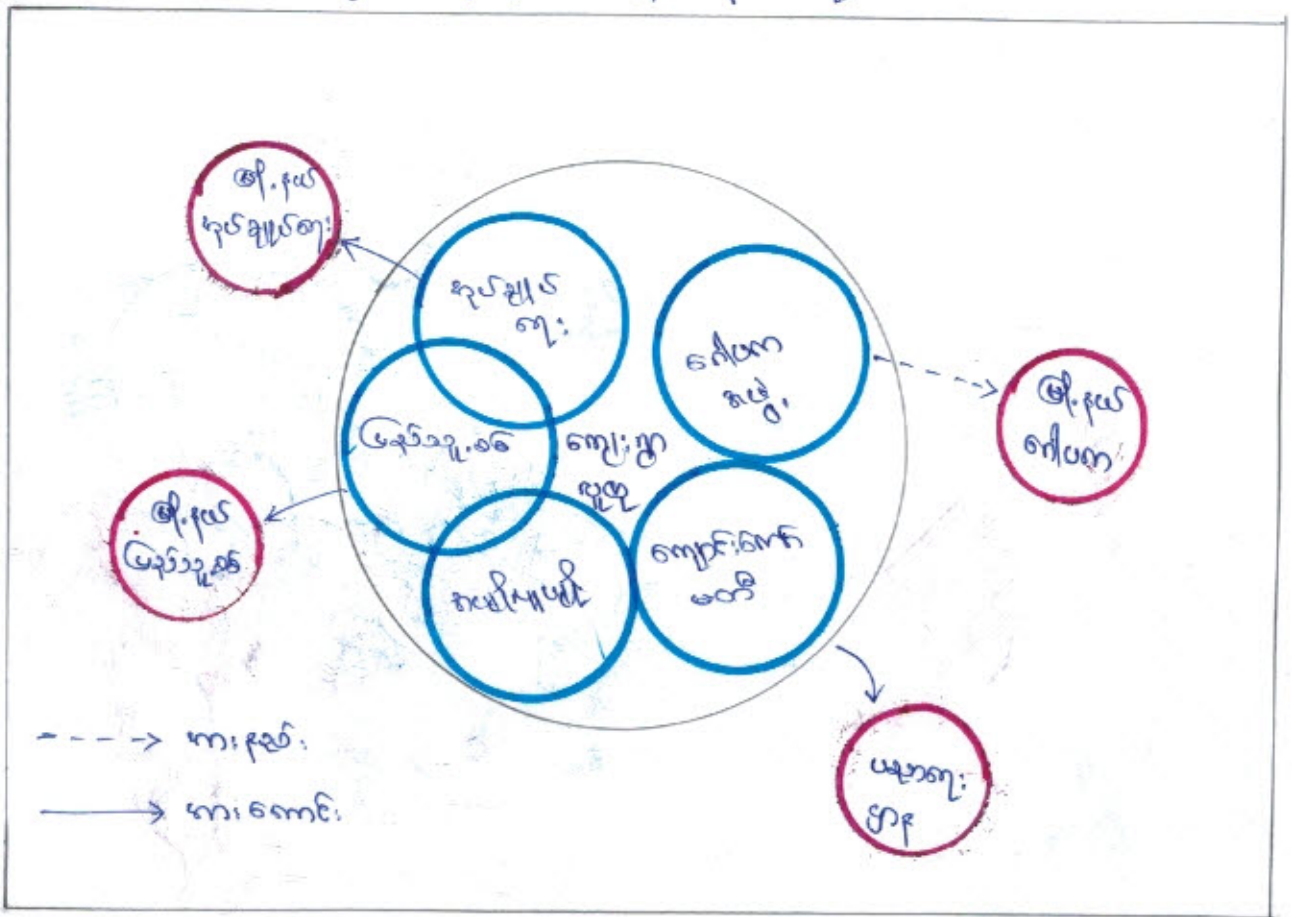 မြို့နယ်
အုပ်ချုပ်ရေး
အုပ်ချုပ်
ရေး
ဂေါပက
အဖွဲ့
မြို့နယ်
ဂေါပက
ပြည်သူ့စစ်
ကျေးရွာ
လူထု
မြို့နယ်
ပြည်သူ့စစ်
ကျောင်းကော်
မတီ
ပညာရေး
ဌာန
အားနည်း
အားကောင်း